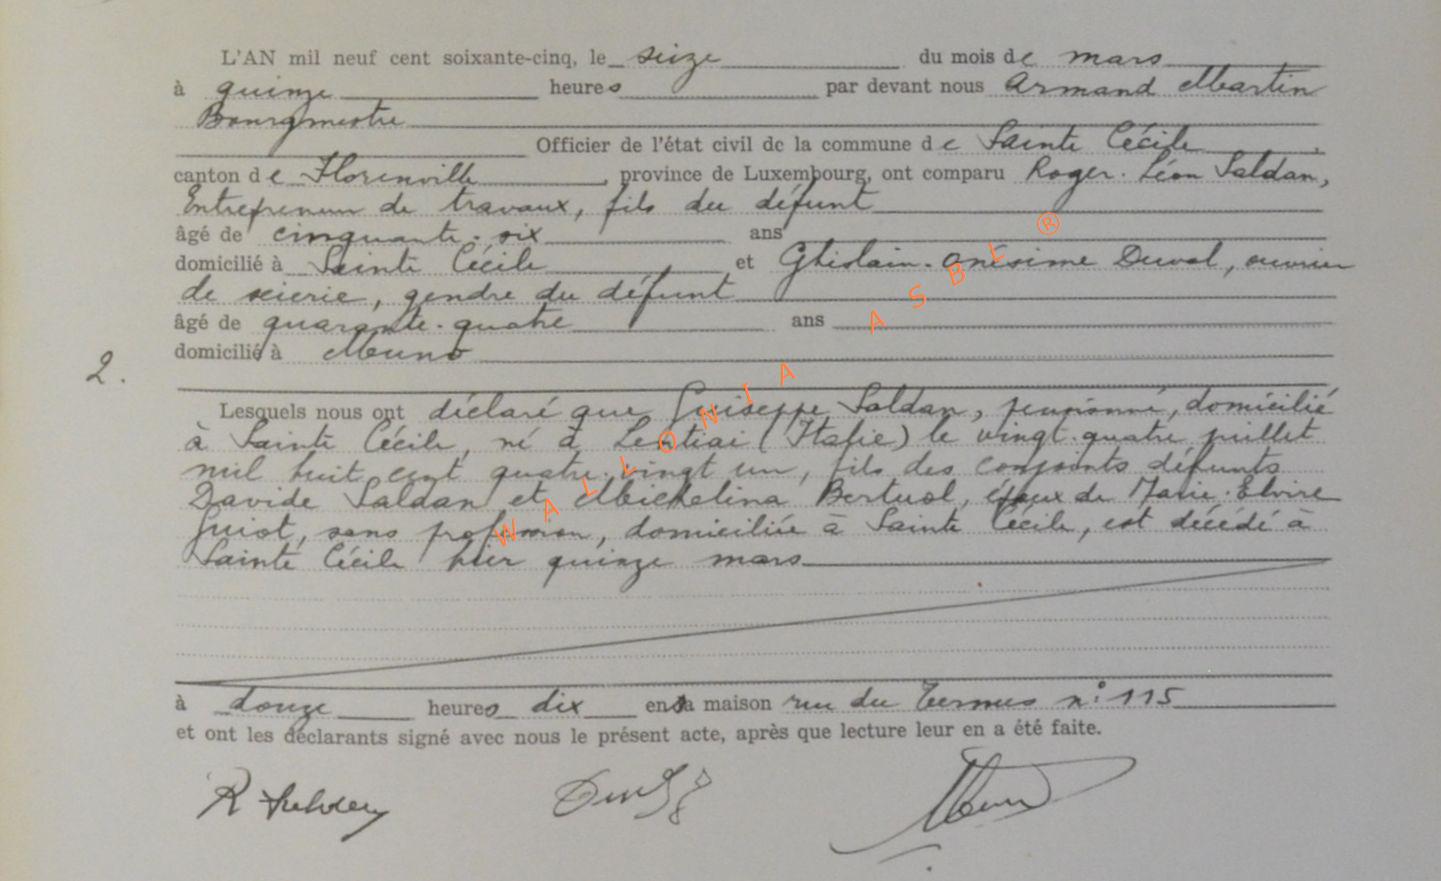 L'AN mil neuf cent soixante-cinq, le seize du mois de mars
à quinze heures par devant nous Armand Martin
Bourgmestre
Officier de l'état civil de la commune de Sainte Cécile
canton de Florenville, province de Luxembourg, ont comparu Roger-Léon Saldan,
Entrepreneur de travaux, fils du défunt
âgé de cinquante-six ans
domicilié à Sainte Cécile et Ghislain-Onésime Duval, ouvrier
de scierie, gendre du défunt
âgé de quarante-quatre ans
domicilié à Muno
2.
Lesquels nous ont déclaré que Guiseppe Saldan, pensionné, domicilié
à Sainte Cécile, né à Lentiai (Italie) le vingt-quatre juillet
mil huit cent quatre-vingt un, fils des conjoints défunts
Davide Saldan et Michelina Bertuol, époux de Marie-Elvire
Guiot, sans profession, domiciliée à Sainte Cécile, est décédé à
Sainte Cécile hier quinze mars
à douze heures dix en sa maison rue du Termes n° 115
et ont les déclarants signé avec nous le présent acte, après que lecture leur en a été faite.
R Saldan
WALLONIA ASBL ®